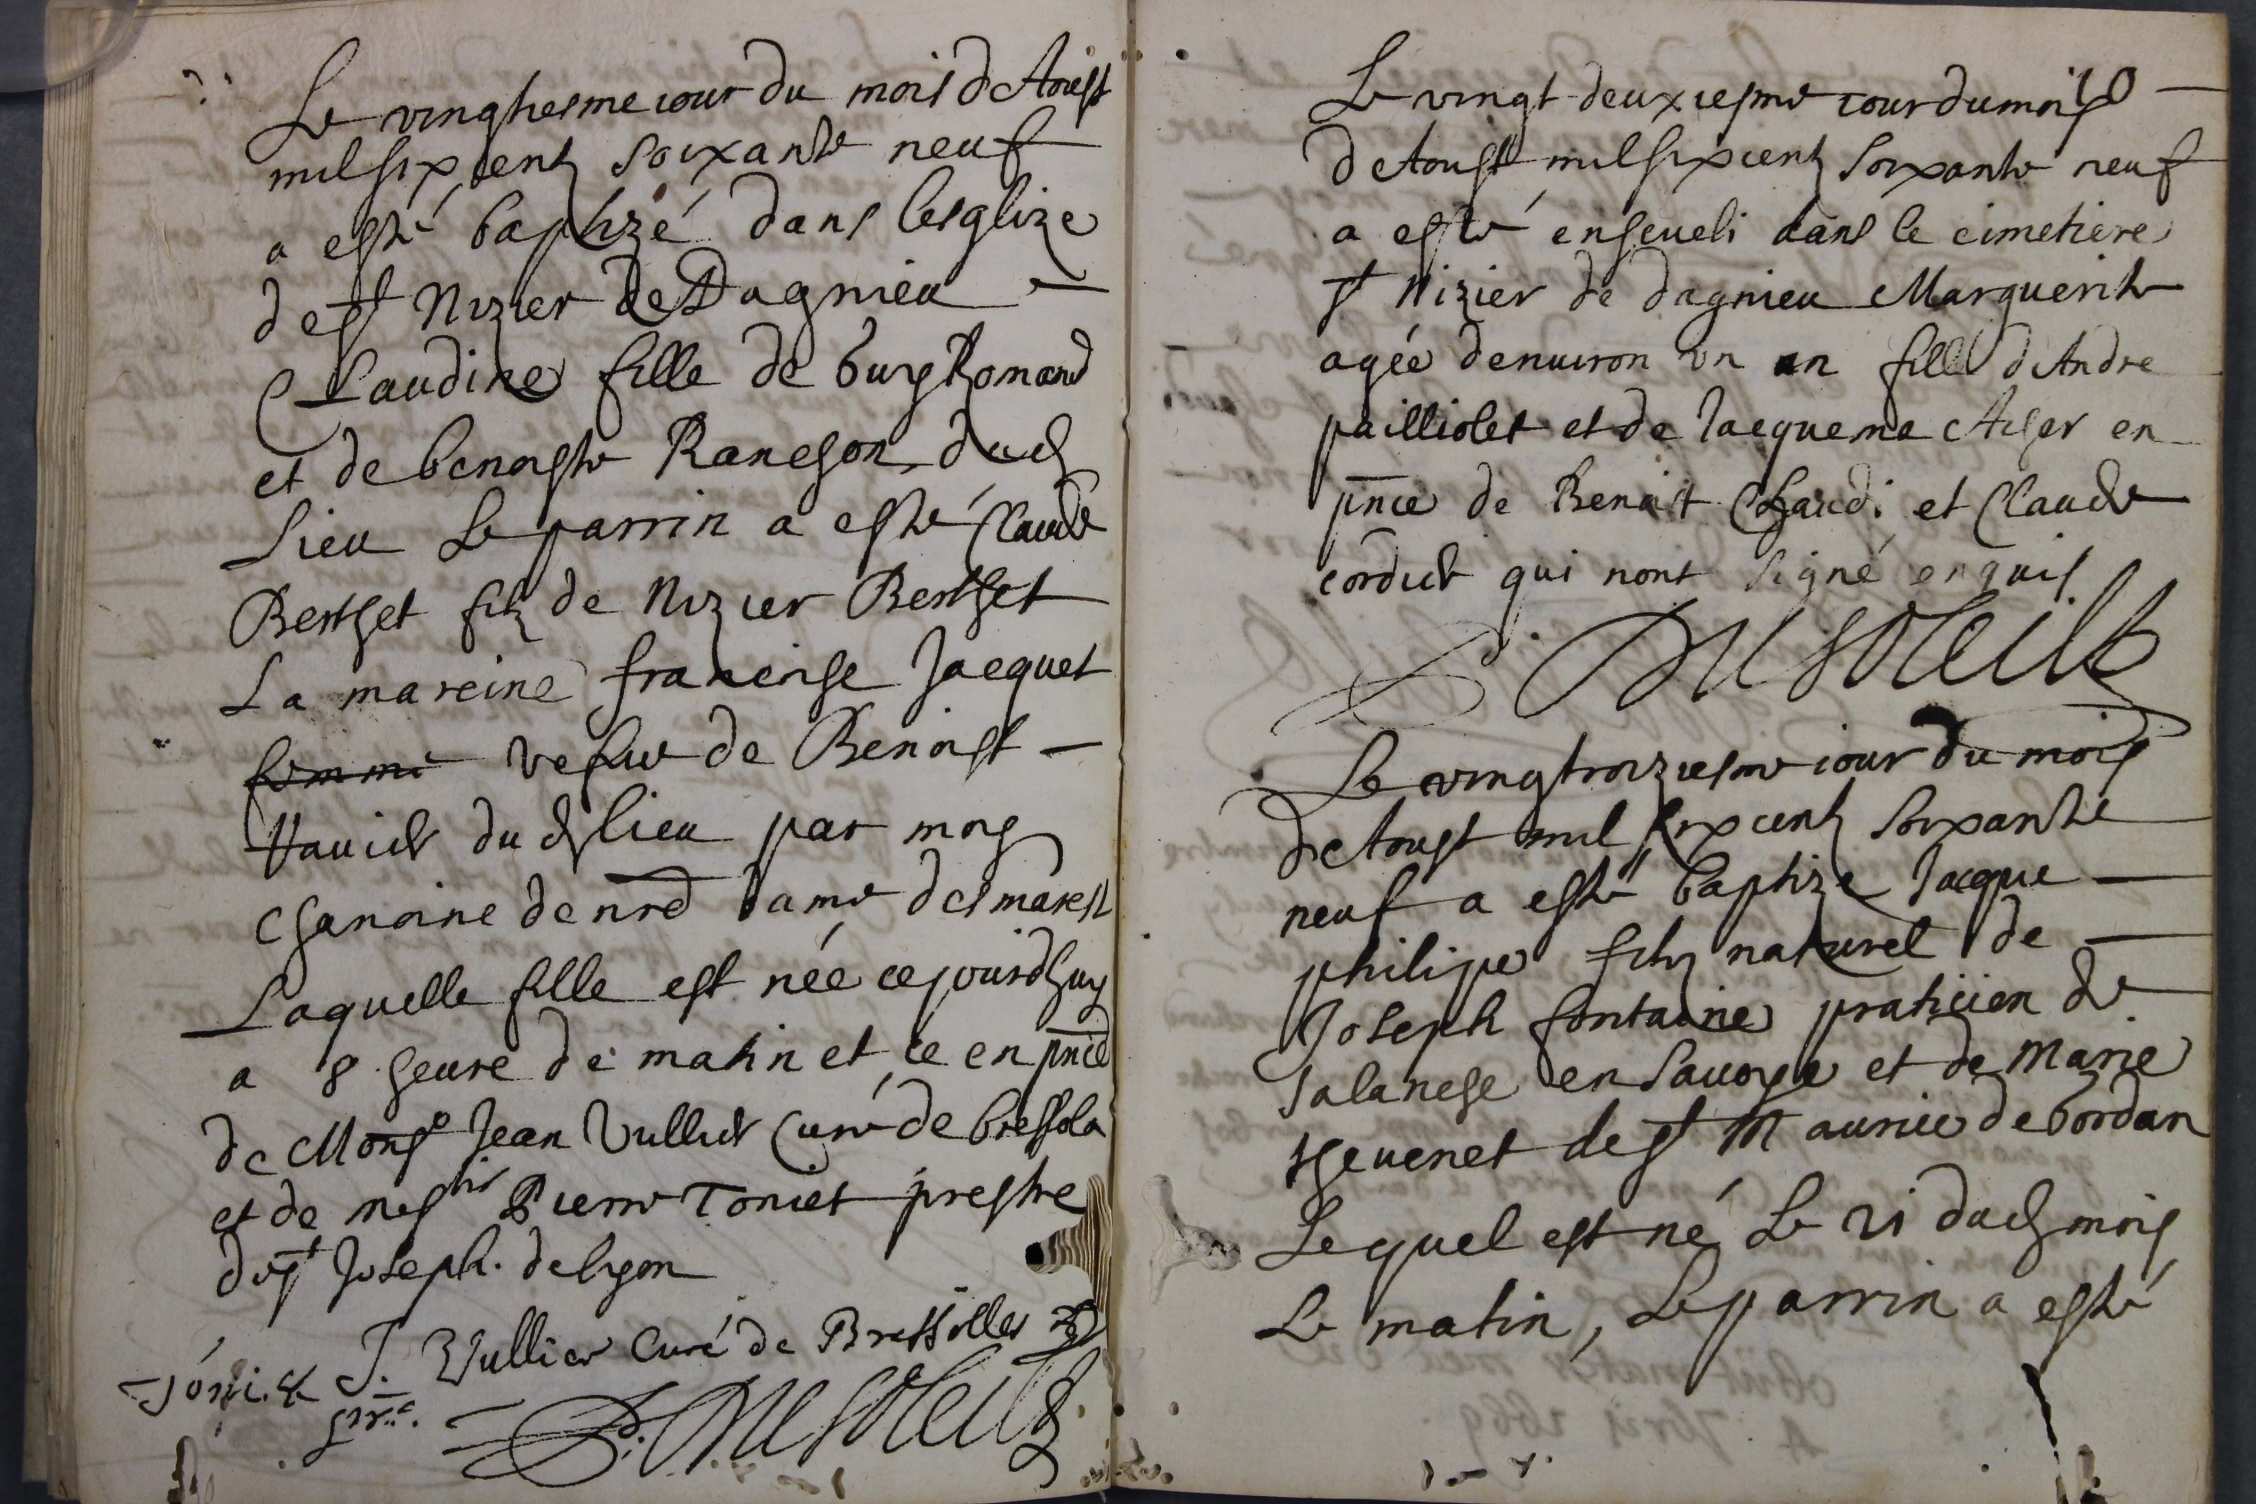 Le vingtiesme iour du mois d'Aoust
mil six centz soixante neuf
a esté baptizé dans lesglize
de st Nizier de Dagnieu
Claudine fille de Guy Romand
et de benoiste Raneson dud
Lieu Le parrin a esté Claude
Berthet filz de Nizier Berthet
La mareine francoise Jacquet
femme vefue de Benoist
du d lieu par moy
chanoine de nre dame des marest
Laquelle fille est née ce jourdhuy
a 8 heure de matin et ce en pnce
de Monsr Jean Vullier Curé de bressola
et de mesre Pierre Toniet prestre
de st Joseph. de lyon
J. Vullier Curé de Bressolles
P. Dusoleil
10
Le vingt deuxiesme iour du mois
d'Aoust mil six centz soixante neuf
a esté enseueli dans le cimetiere
st Nizier de dagnieu Marguerite
agée denuiron un an fille d'Andre
pailliolet et de Jacqueme Auger en
pnce de Benoit Chardi et Claude
cordier qui nont signé enquis
P. Dusoleil
Le vingtroiziesme iour du mois
d'Aoust mil six centz soixante
neuf a esté baptize Jacque
philipe filz naturel de
Joseph fontaine praticien de
salanche en Sauoye et de Marie
theuenet de st Maurice de bordan
Lequel est né Le 21 dud mois
Le matin, Le parrin a esté